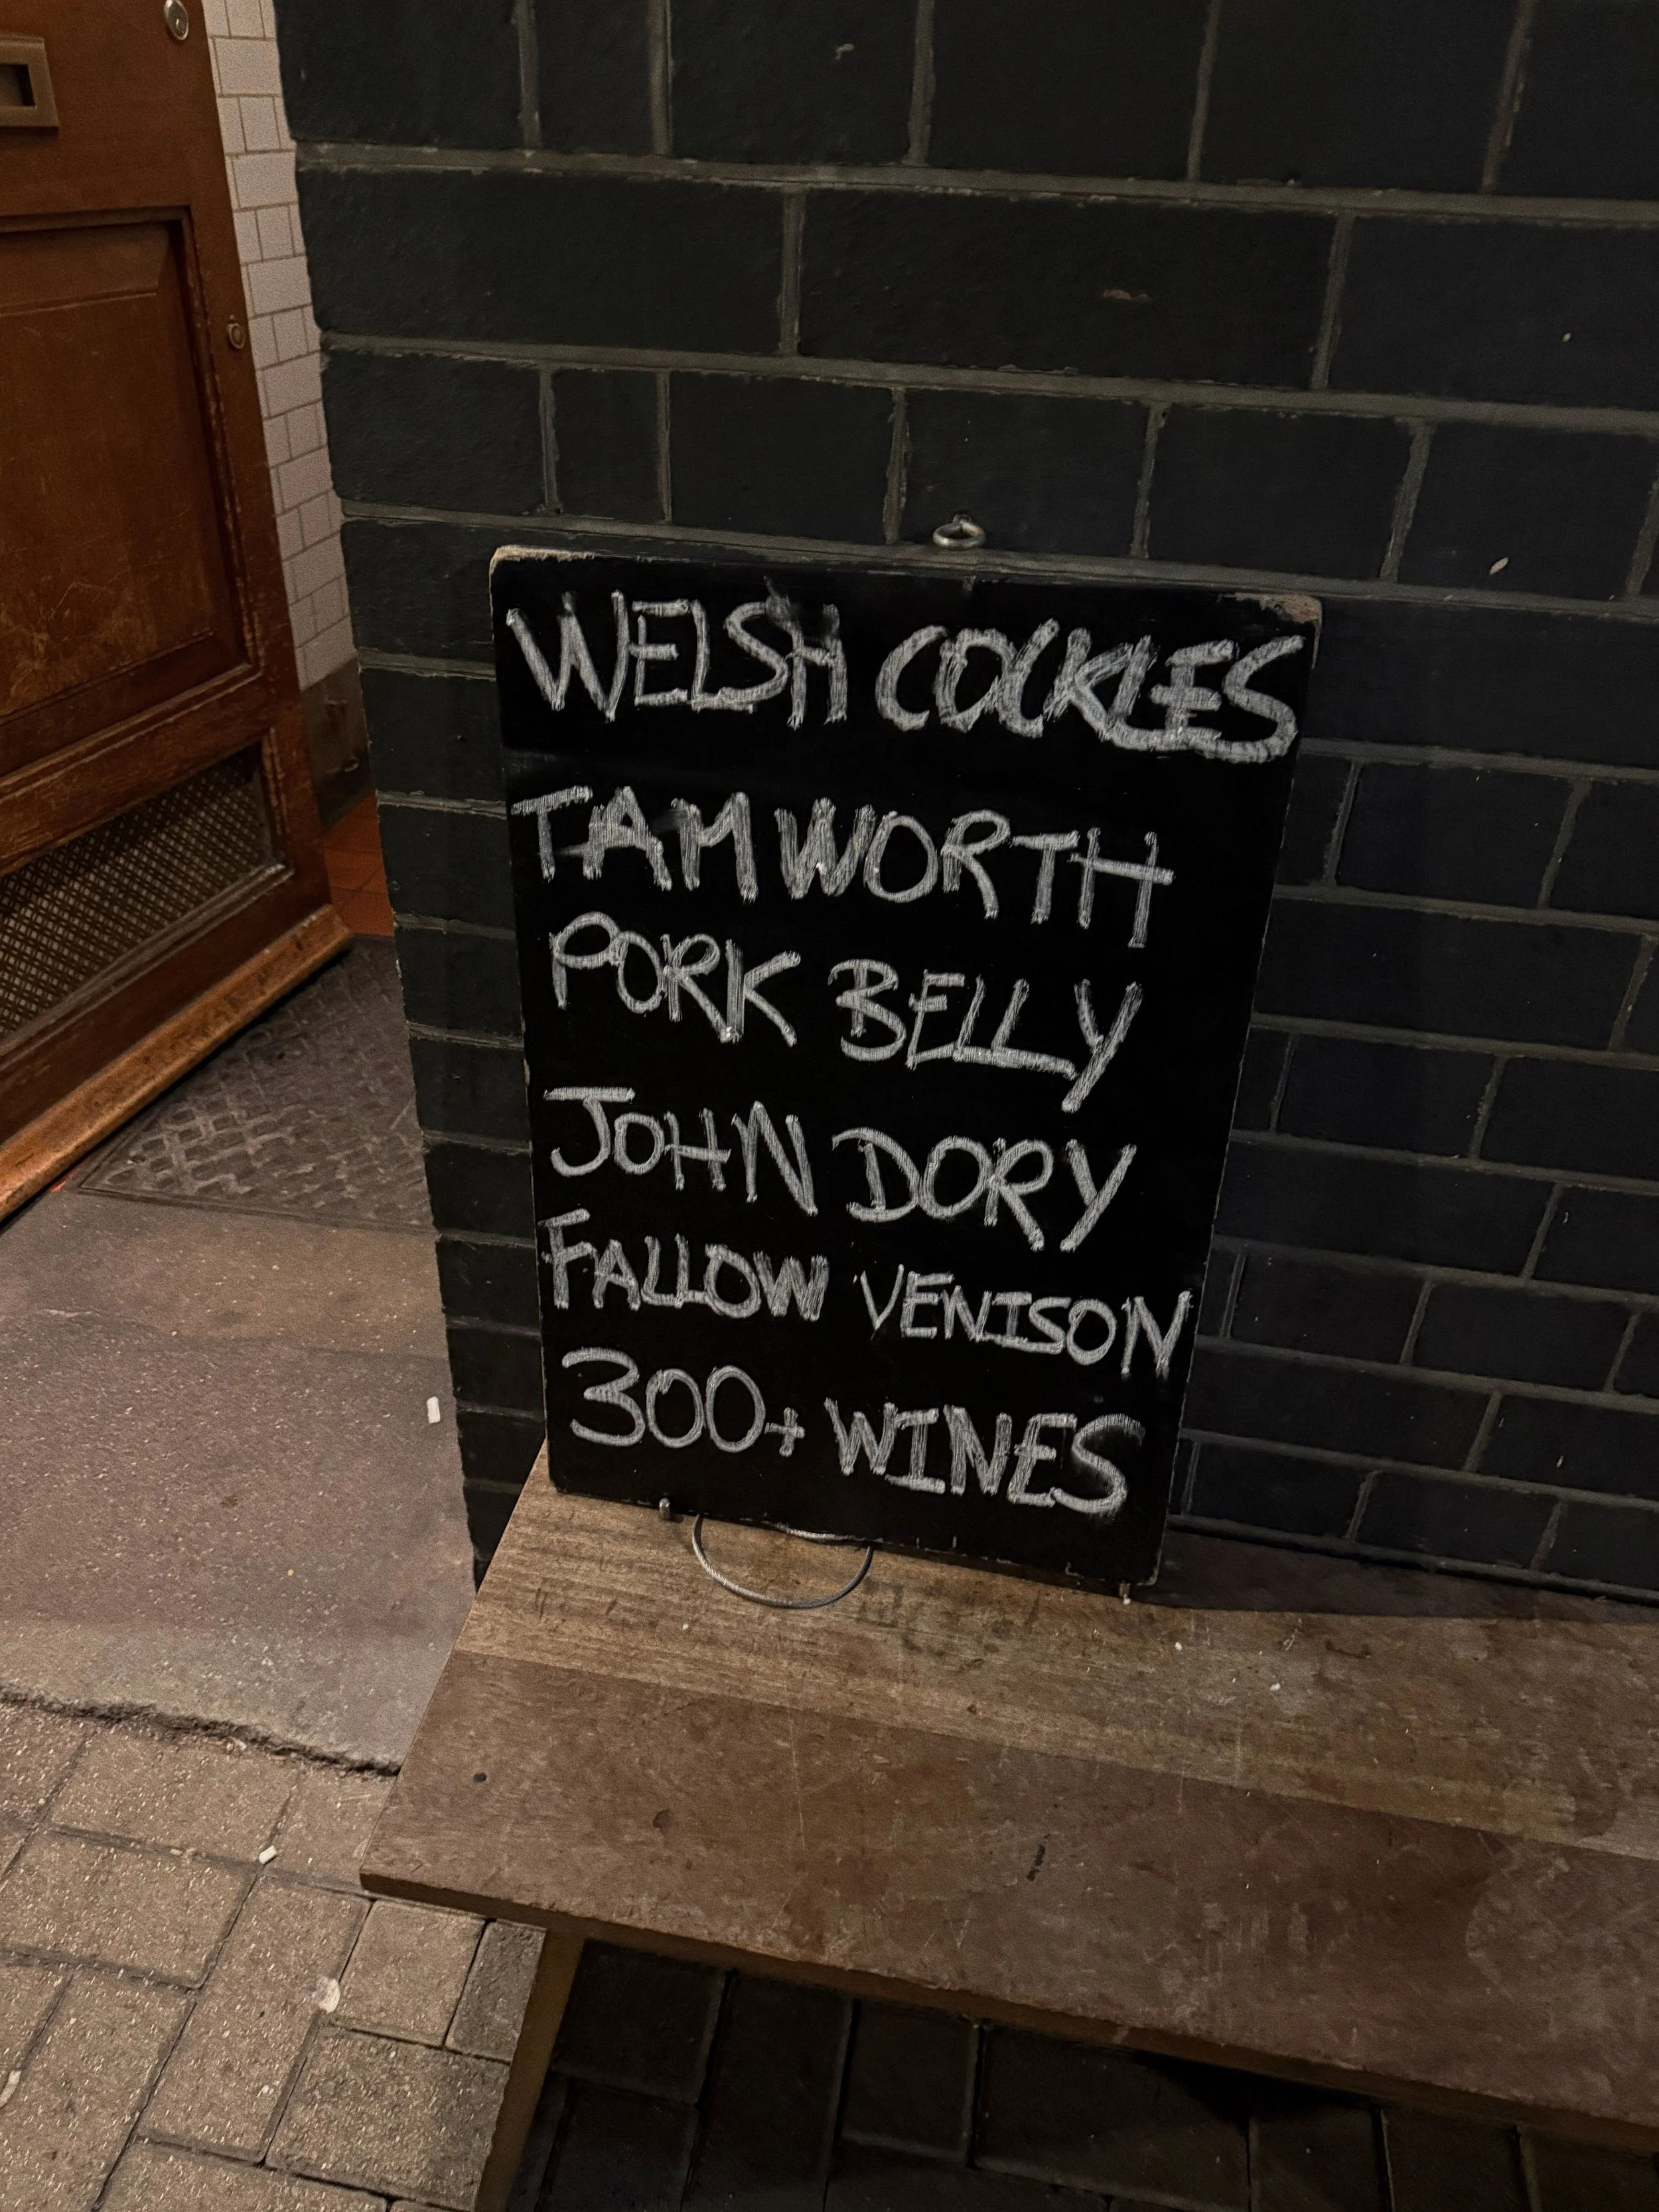 WELSH COCKLES
TAMWORTH
PORK BELLY
JOHN DORY
FALLOW VENISON
300+ WINES